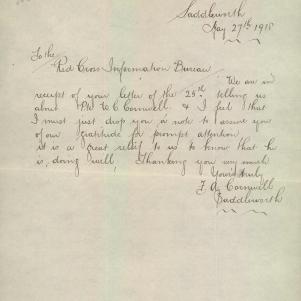 Saddleworth
May 27th 1918
To the
Red Cross Information Bureau
We are in
receipt of your letter of the 25th telling us
about Pte W. C. Cornwell & I feel that
I must just drop you a note to assure you
of our gratitude for prompt attention
it is a great relief to us to know that he
is, doing well, Thanking you very much
Yours truly
F. A. Cornwell
Saddleworth